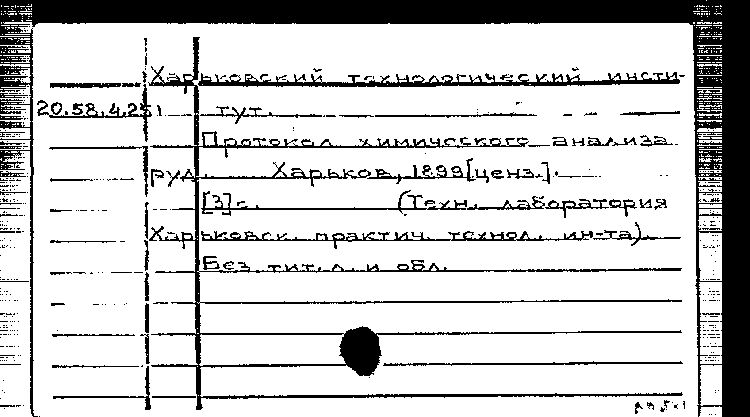 Харьковский технологический инсти-
20.58.4.251 тут.
Протокол химического анализа
руд. Харьков, 1899[ценз.].
[3]с. (Техн. лаборатория
Харьковск. практич. технол. ин-та).
Без тит. л. и обл.